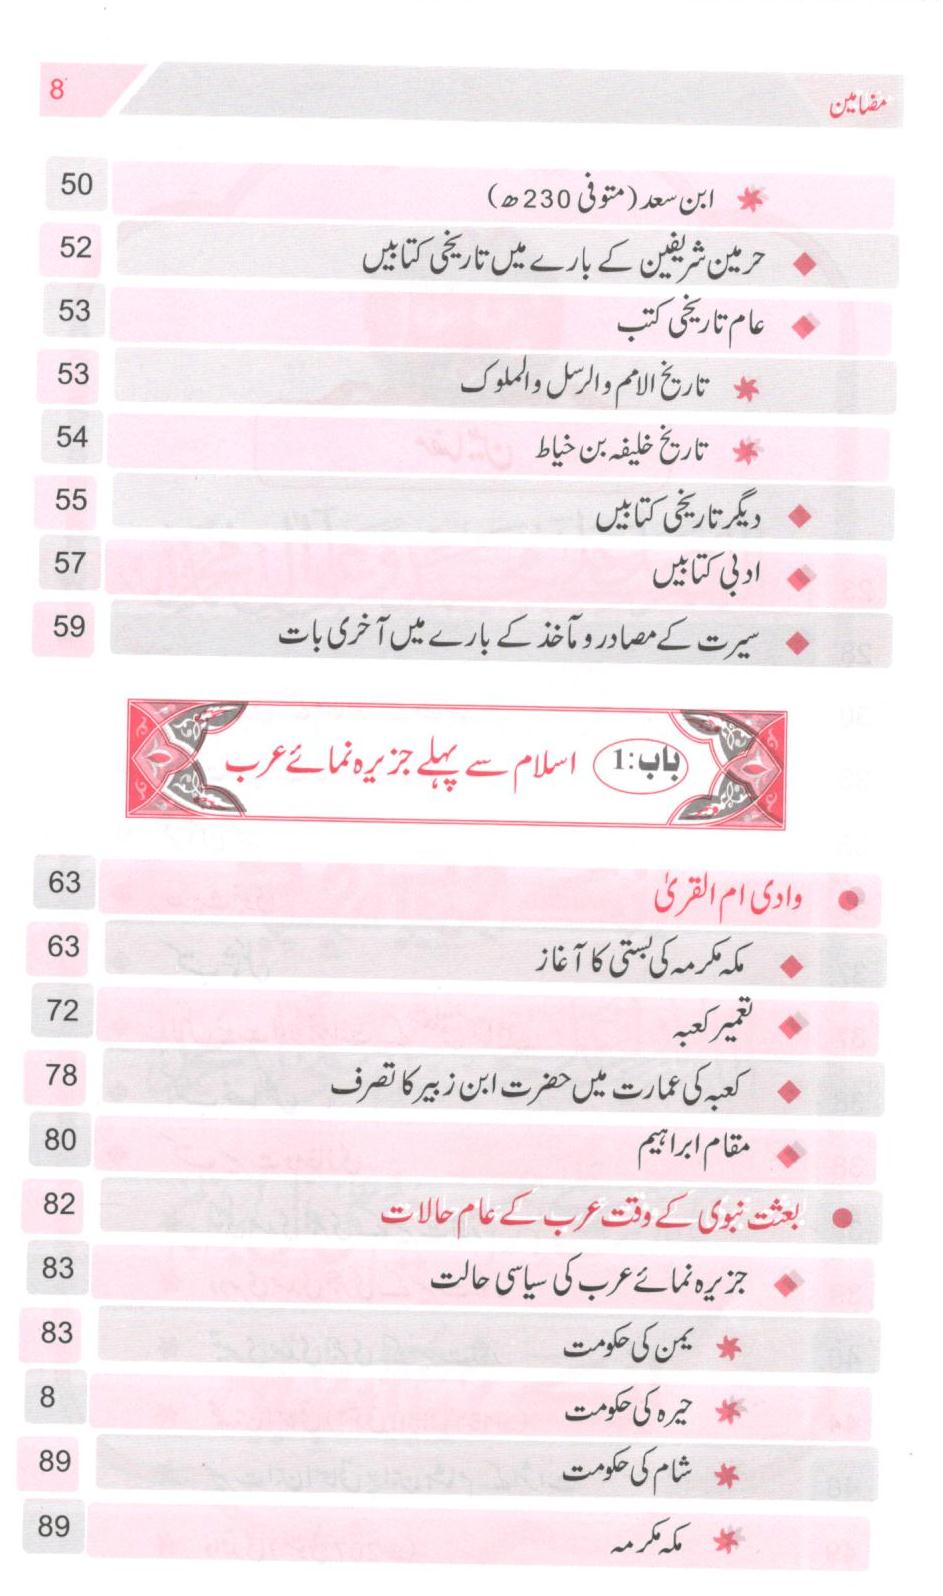 مضامین 8
ابن سعد (متوفی 230ھ) 50
حرمین شریفین کے بارے میں تاریخی کتابیں 52
عام تاریخی کتب 53
تاریخ الامم والرسل والملوک 53
تاریخ خلیفہ بن خیاط 54
دیگر تاریخی کتابیں 55
ادبی کتابیں 57
سیرت کے مصادر و مآخذ کے بارے میں آخری بات 59
باب:1 اسلام سے پہلے جزیرہ نمائے عرب
وادی ام القریٰ 63
مکہ مکرمہ کی بستی کا آغاز 63
تعمیر کعبہ 72
کعبہ کی عمارت میں حضرت ابن زبیر کا تصرف 78
مقام ابراہیم 80
بعثت نبوی کے وقت عرب کے عام حالات 82
جزیرہ نمائے عرب کی سیاسی حالت 83
یمن کی حکومت 83
حیرہ کی حکومت 8
شام کی حکومت 89
مکہ مکرمہ 89